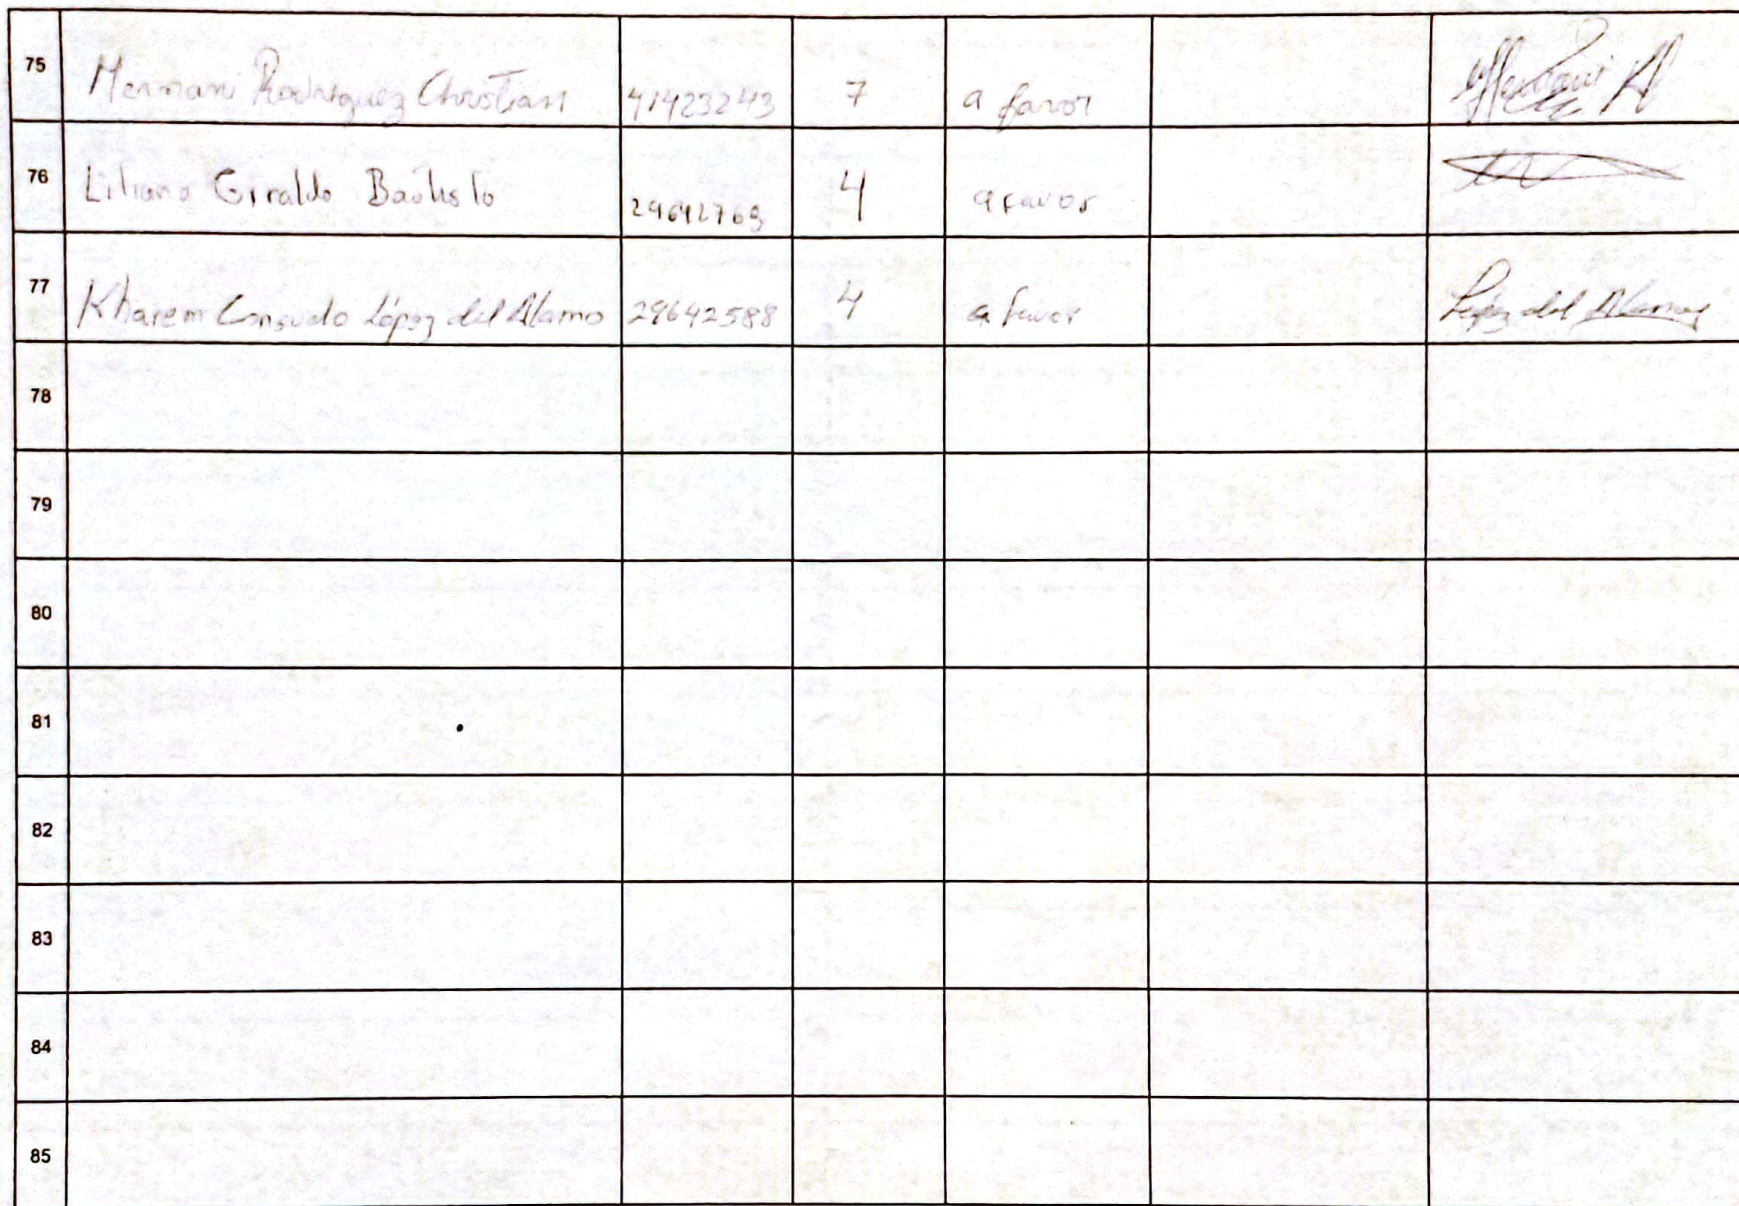 75 Mamani Rodriguez Christian 41423243 7 a favor
76 Liliana Giraldo Bautista 29642769 4 a favor
77 Kharem Consuelo López del Alamo 29642588 4 a favor López del Alamo
78
79
80
81
82
83
84
85